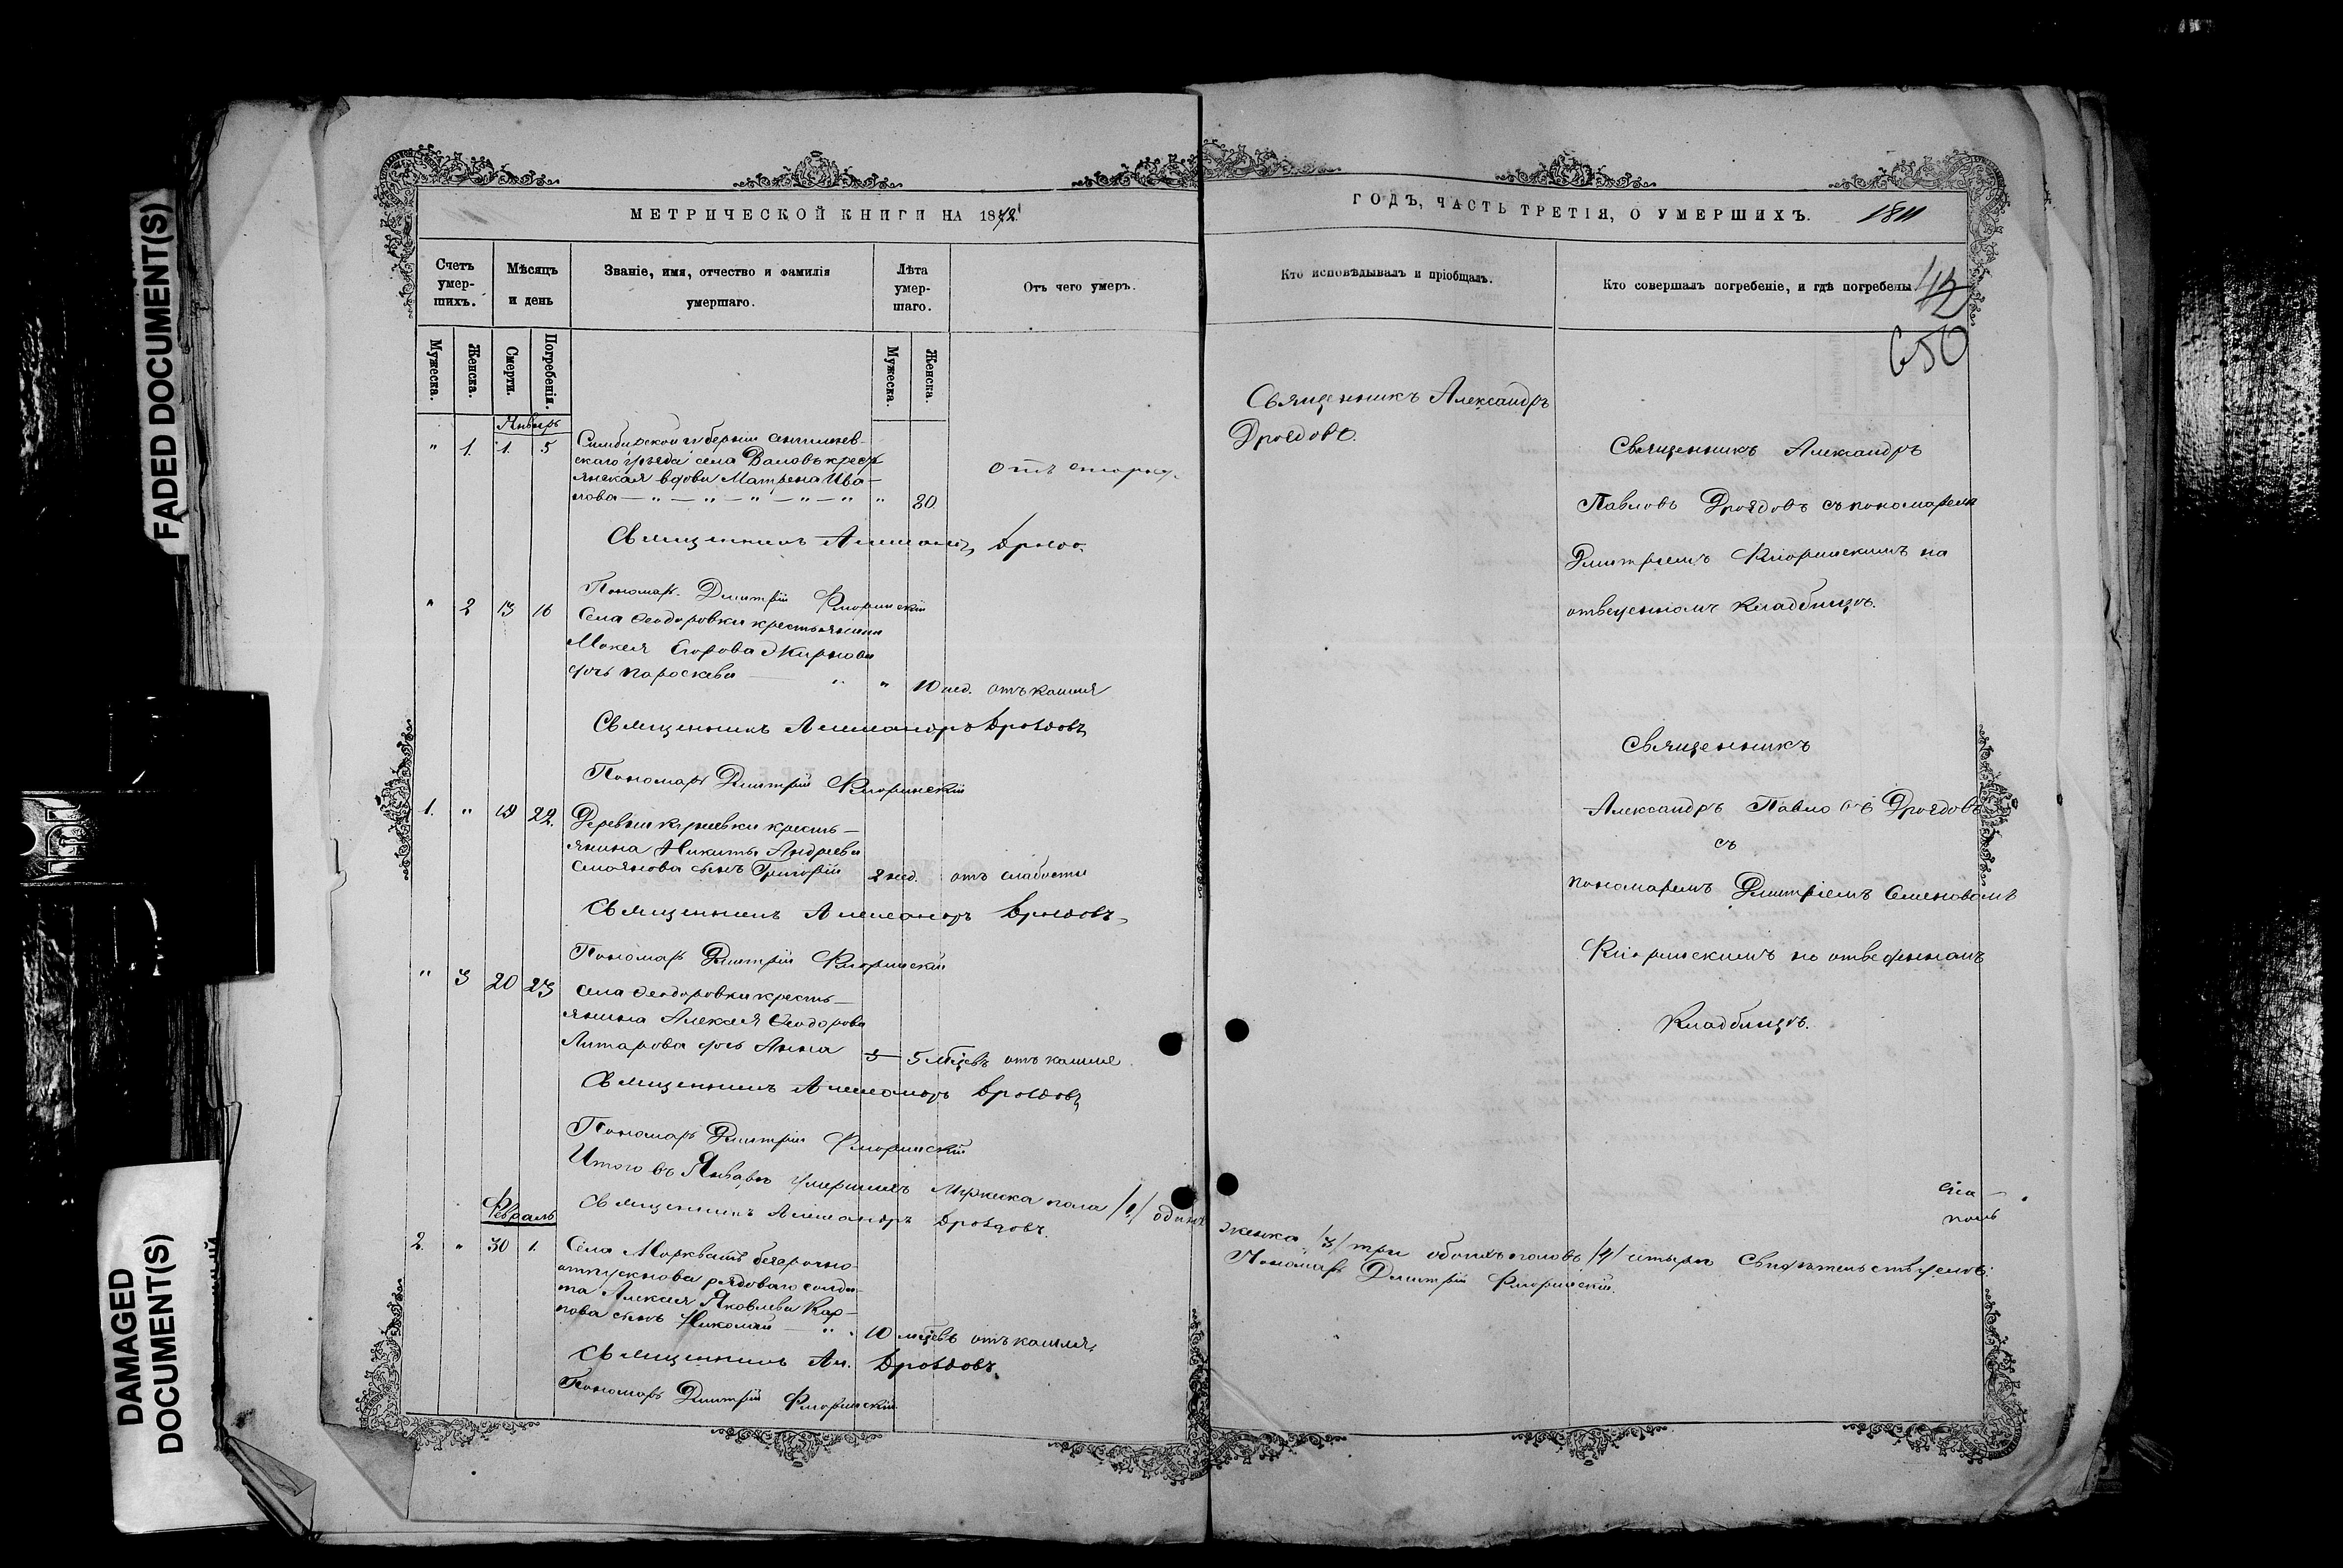 FADED DOCUMENT(S)
DAMAGED
DOCUMENT(S)
МЕТРИЧЕСКОЙ КНИГИ НА 1872
Счетъ
умер-
шихъ.
Мѣсяцъ
и день
Званіе, имя, отчество и фамилія
умершаго.
Лѣта
умер-
шаго.
Отъ чего умеръ.
Мужеска.
Женска.
Смерти.
Погребенія.
Мужеска.
Женска.
Январь
" 1. 1. 5
Симбирской губерніи
скаго уѣзда села Валовъ кресть
янская вдова Матрена Ива-
нова — " — " — " — " — " " 80. отъ старос.
Священникъ Александръ Дроздо.
Пономарь Дмитрій Флоринскій
" 2 13 16
Села Ѳеодоровки крестьянина
Мокея Егорова Жирнова
дочь Параскева " " 10 нед. отъ кашля
Священникъ Александръ Дроздовъ
Пономарь Дмитрій Флоринскій
1. " 19 22.
Деревни кресть-
янина Никиты Андреева
Смолянова сынъ Григорій 2 нед. отъ слабости
Священникъ Александръ Дроздовъ
Пономарь Дмитрій Флоринскій
" 3 20 23
Села Ѳеодоровки кресть-
янина Алексея Ѳеодорова
дочь Анна 5 мѣцевъ отъ кашля
Священникъ Александръ Дроздовъ
Пономарь Дмитрій Флоринскій
Итого въ Январѣ умершихъ мужеска пола /1/ одинъ
Священникъ Александръ Дроздовъ.
Февраль
2. " 30 1.
Села Моркваши безсрочно-
отпускнова рядоваго солда
та Алексея Яковлева Кар-
пова сынъ Николай — " . 10 мѣцевъ отъ кашля
Священникъ Ал. Дроздовъ.
Пономарь Дмитрій Флоринскій
ГОДЪ, ЧАСТЬ ТРЕТІЯ, О УМЕРШИХЪ.
1811
Кто исповѣдывалъ и пріобщалъ.
Кто совершалъ погребеніе, и гдѣ погребены.
42
650
Священникъ Александръ
Дроздовъ.
Священникъ Александръ
Павловъ Дроздовъ съ пономаремъ
Дмитріемъ Флоринскимъ на
отведенномъ кладбищѣ.
Священникъ
Александръ Павловъ Дроздовъ
съ
пономаремъ Дмитріемъ Семеновымъ
Флоринскимъ на отведенномъ
Кладбищѣ.
женска /3/ три обоихъ половъ /4/ четыре Свидѣтельствуемъ:
Пономарь Дмитрій Флоринскій.